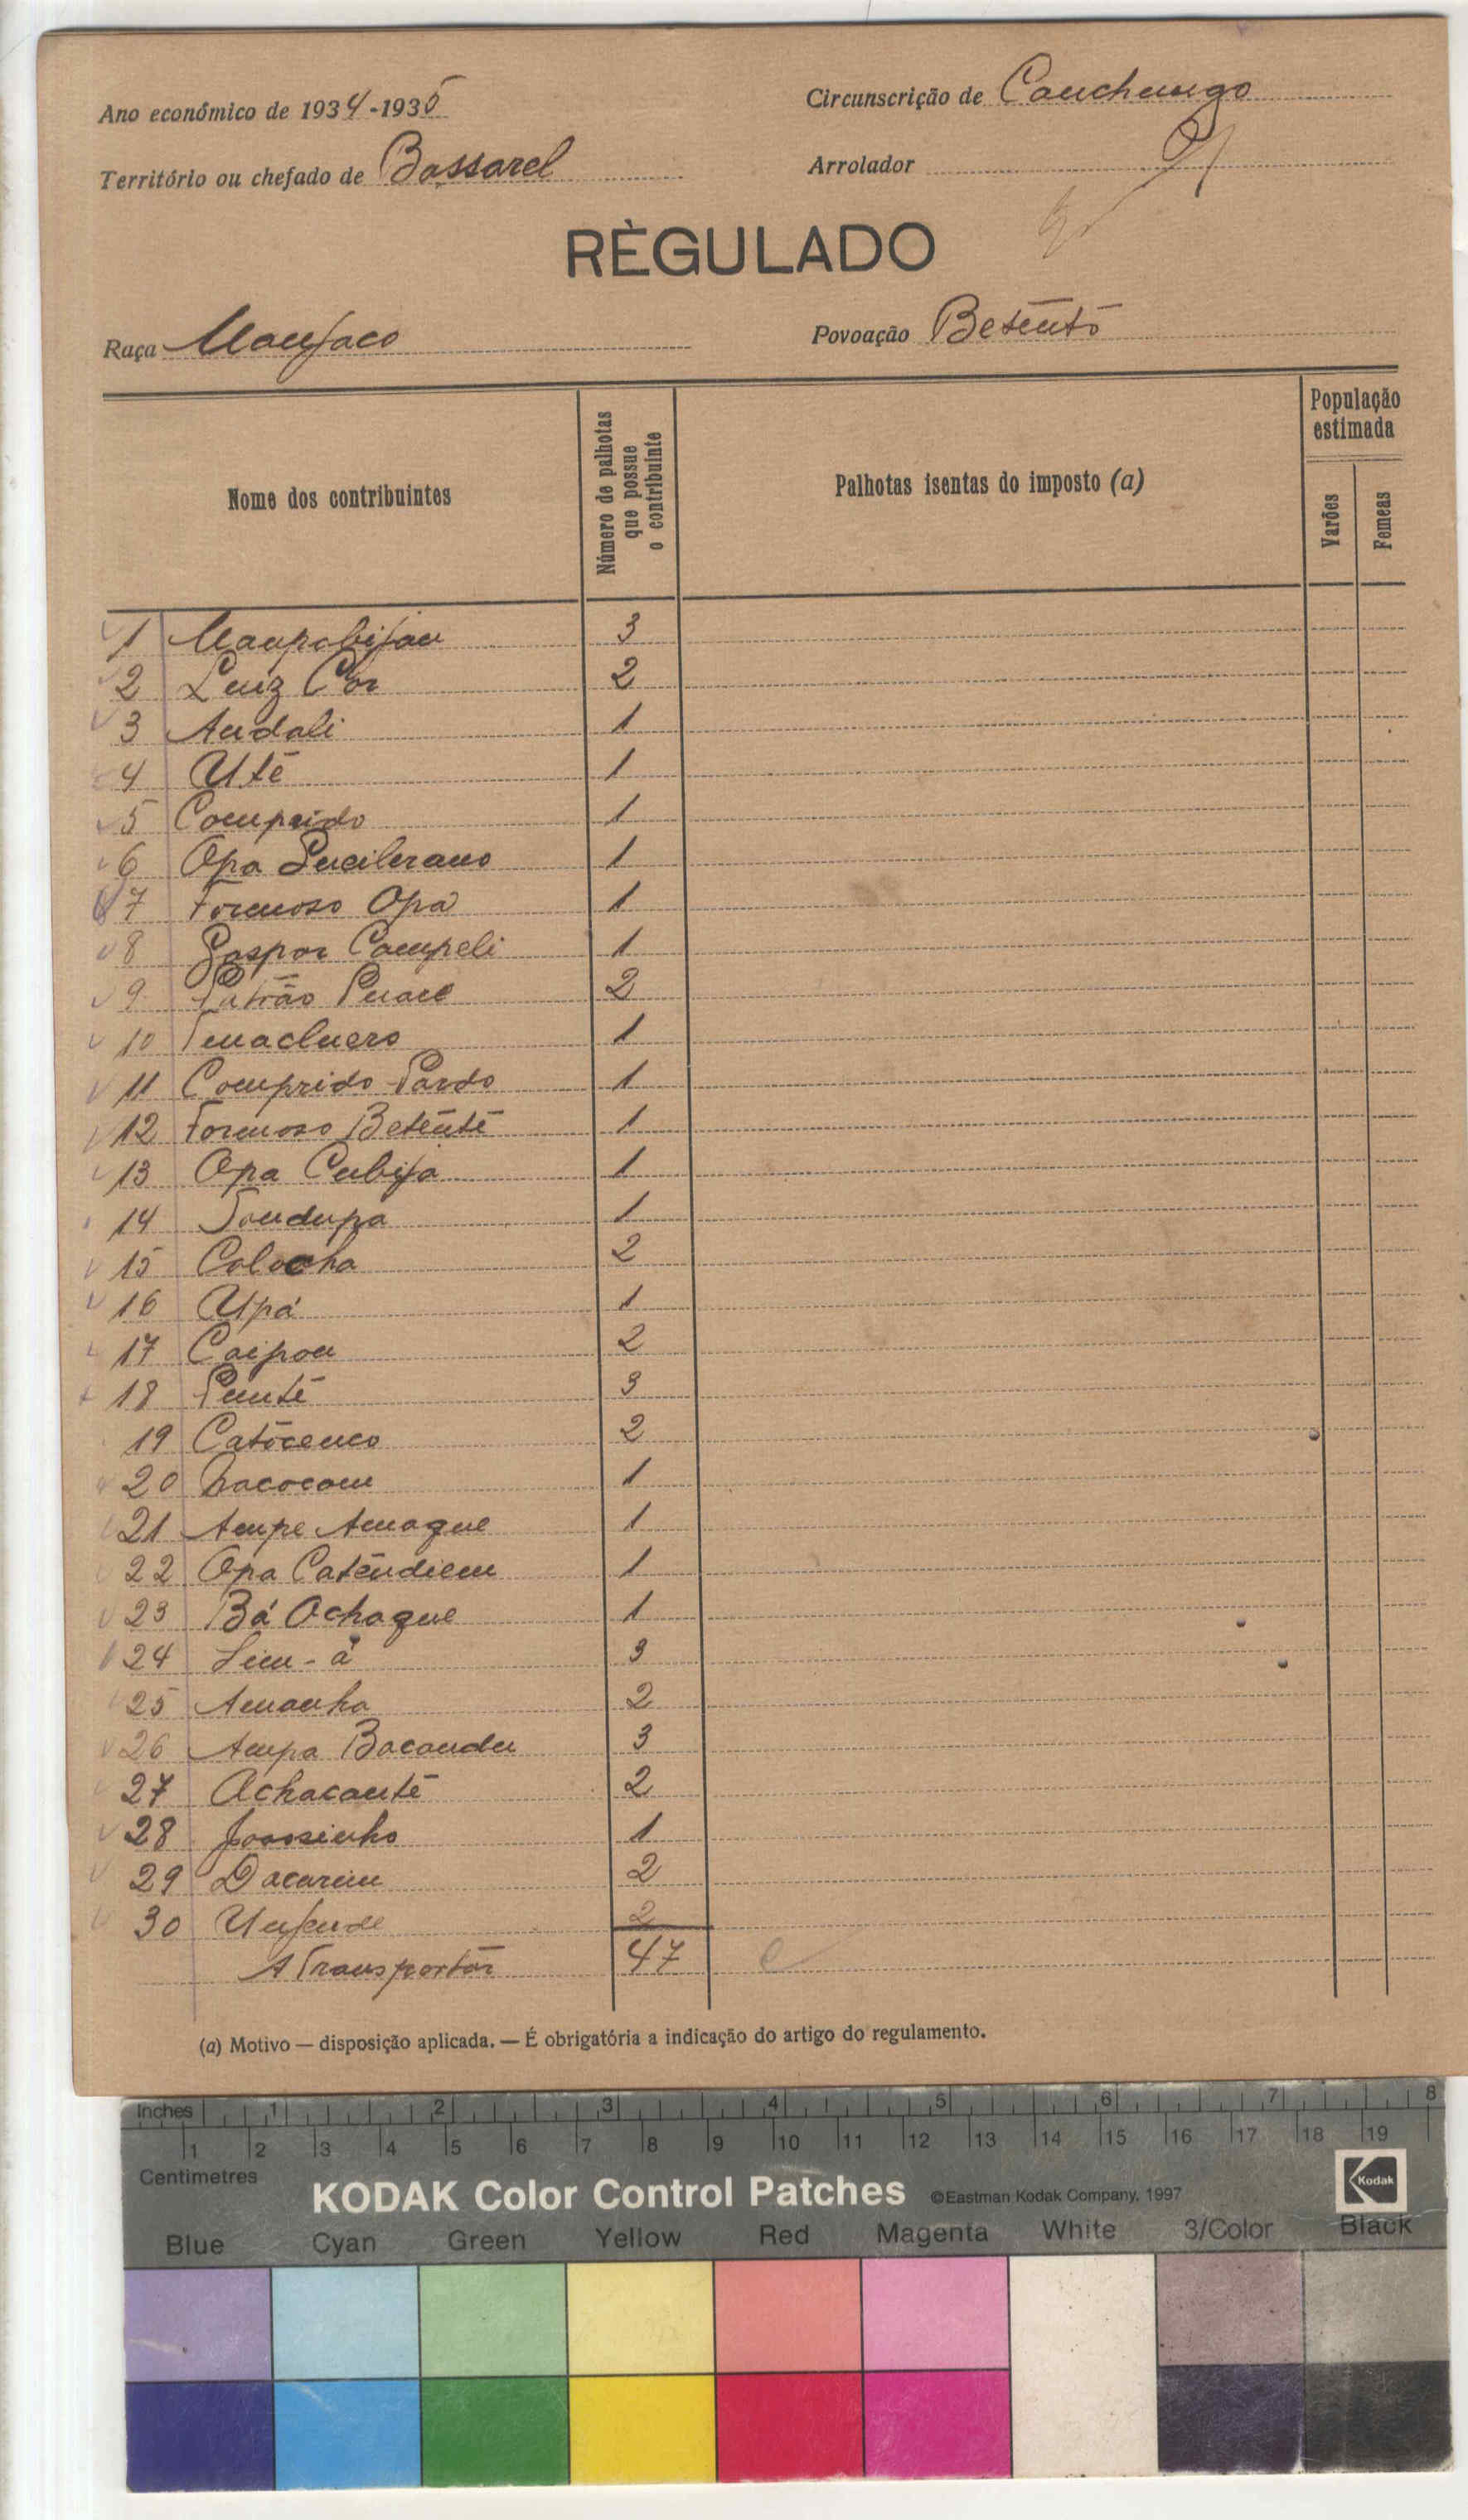 Ano económico de 1934-1935
Circunscrição de Canchungo
Território ou chefado de Bassarel
Arrolador
RÈGULADO
Raça Manjaco
Povoação Betentô
Nome dos contribuintes
Número de palhotas que possue o contribuinte
Palhotas isentas do imposto (a)
População estimada
Varões
Femeas
1 3
2 Luiz Côr 2
3 Andali 1
4 Uté 1
5 Comprido 1
6 Opa 1
7 Formoso Opa 1
8 Gaspar Campeli 1
9 Patrão 2
10 1
11 Comprido Pardo 1
12 Formoso Betênté 1
13 Opa Cubija 1
14 1
15 Calocha 2
16 Upá 1
17 Caipou 2
18 Punté 3
19 2
20 1
21 Ampe Amague 1
22 Opa Catêndiem 1
23 Bá Ochague 1
24 3
25 Amanha 2
26 Ampa Bacandu 3
27 Achacanté 2
28 Joossinho 1
29 Dacarim 2
30 2
A Transportar 47
(a) Motivo — disposição aplicada. — É obrigatória a indicação do artigo do regulamento.
Inches 1 2 3 4 5 6 7 8
1 2 3 4 5 6 7 8 9 10 11 12 13 14 15 16 17 18 19
Centimetres
KODAK Color Control Patches ©Eastman Kodak Company, 1997 Kodak
Blue Cyan Green Yellow Red Magenta White 3/Color Black